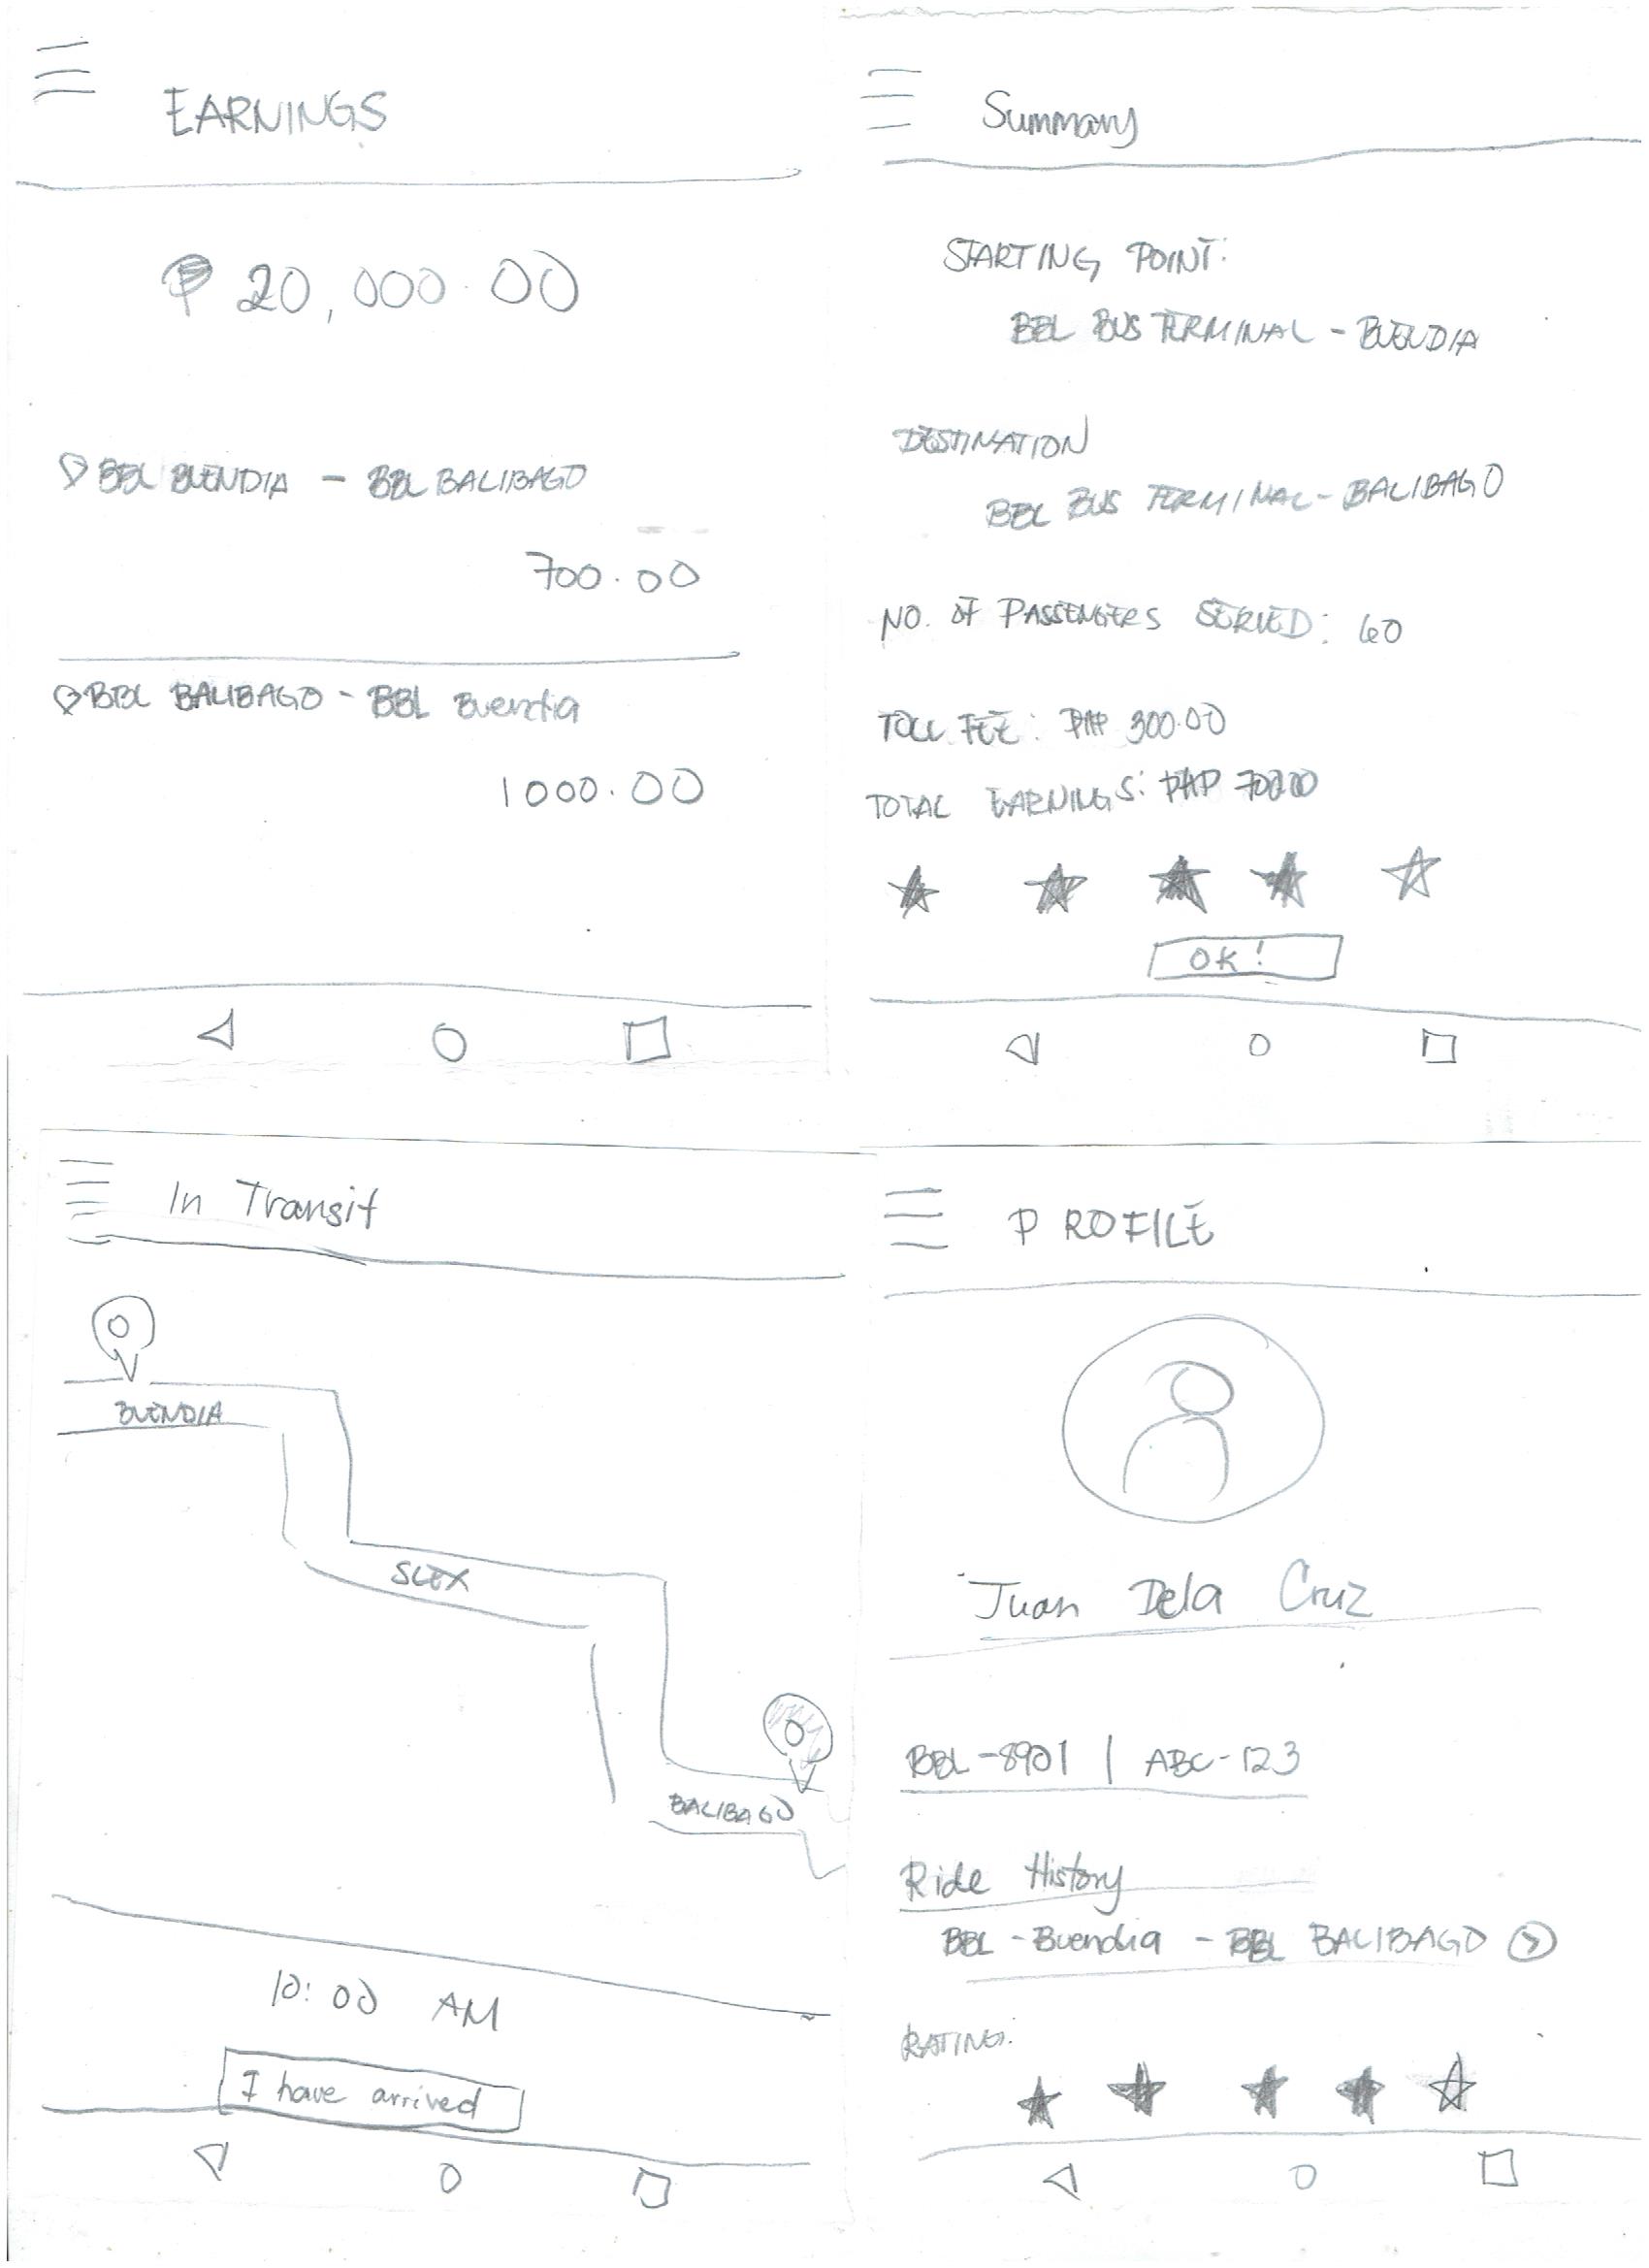 EARNINGS
₱ 20,000.00
BBL BUENDIA - BBL BALIBAGO
700.00
BBL BALIBAGO - BBL Buendia
1000.00
Summary
STARTING POINT:
BBL BUS TERMINAL - BUENDIA
DESTINATION
BBL BUS TERMINAL - BALIBAGO
NO. OF PASSENGERS SERVED: 60
TOLL FEE: PHP 300.00
TOTAL EARNINGS: PHP 700.00
OK!
In Transit
BUENDIA
SLEX
BALIBAGO
10:00 AM
I have arrived
PROFILE
Juan Dela Cruz
BBL-8901 | ABC-123
Ride History
BBL - Buendia - BBL BALIBAGO
RATING: